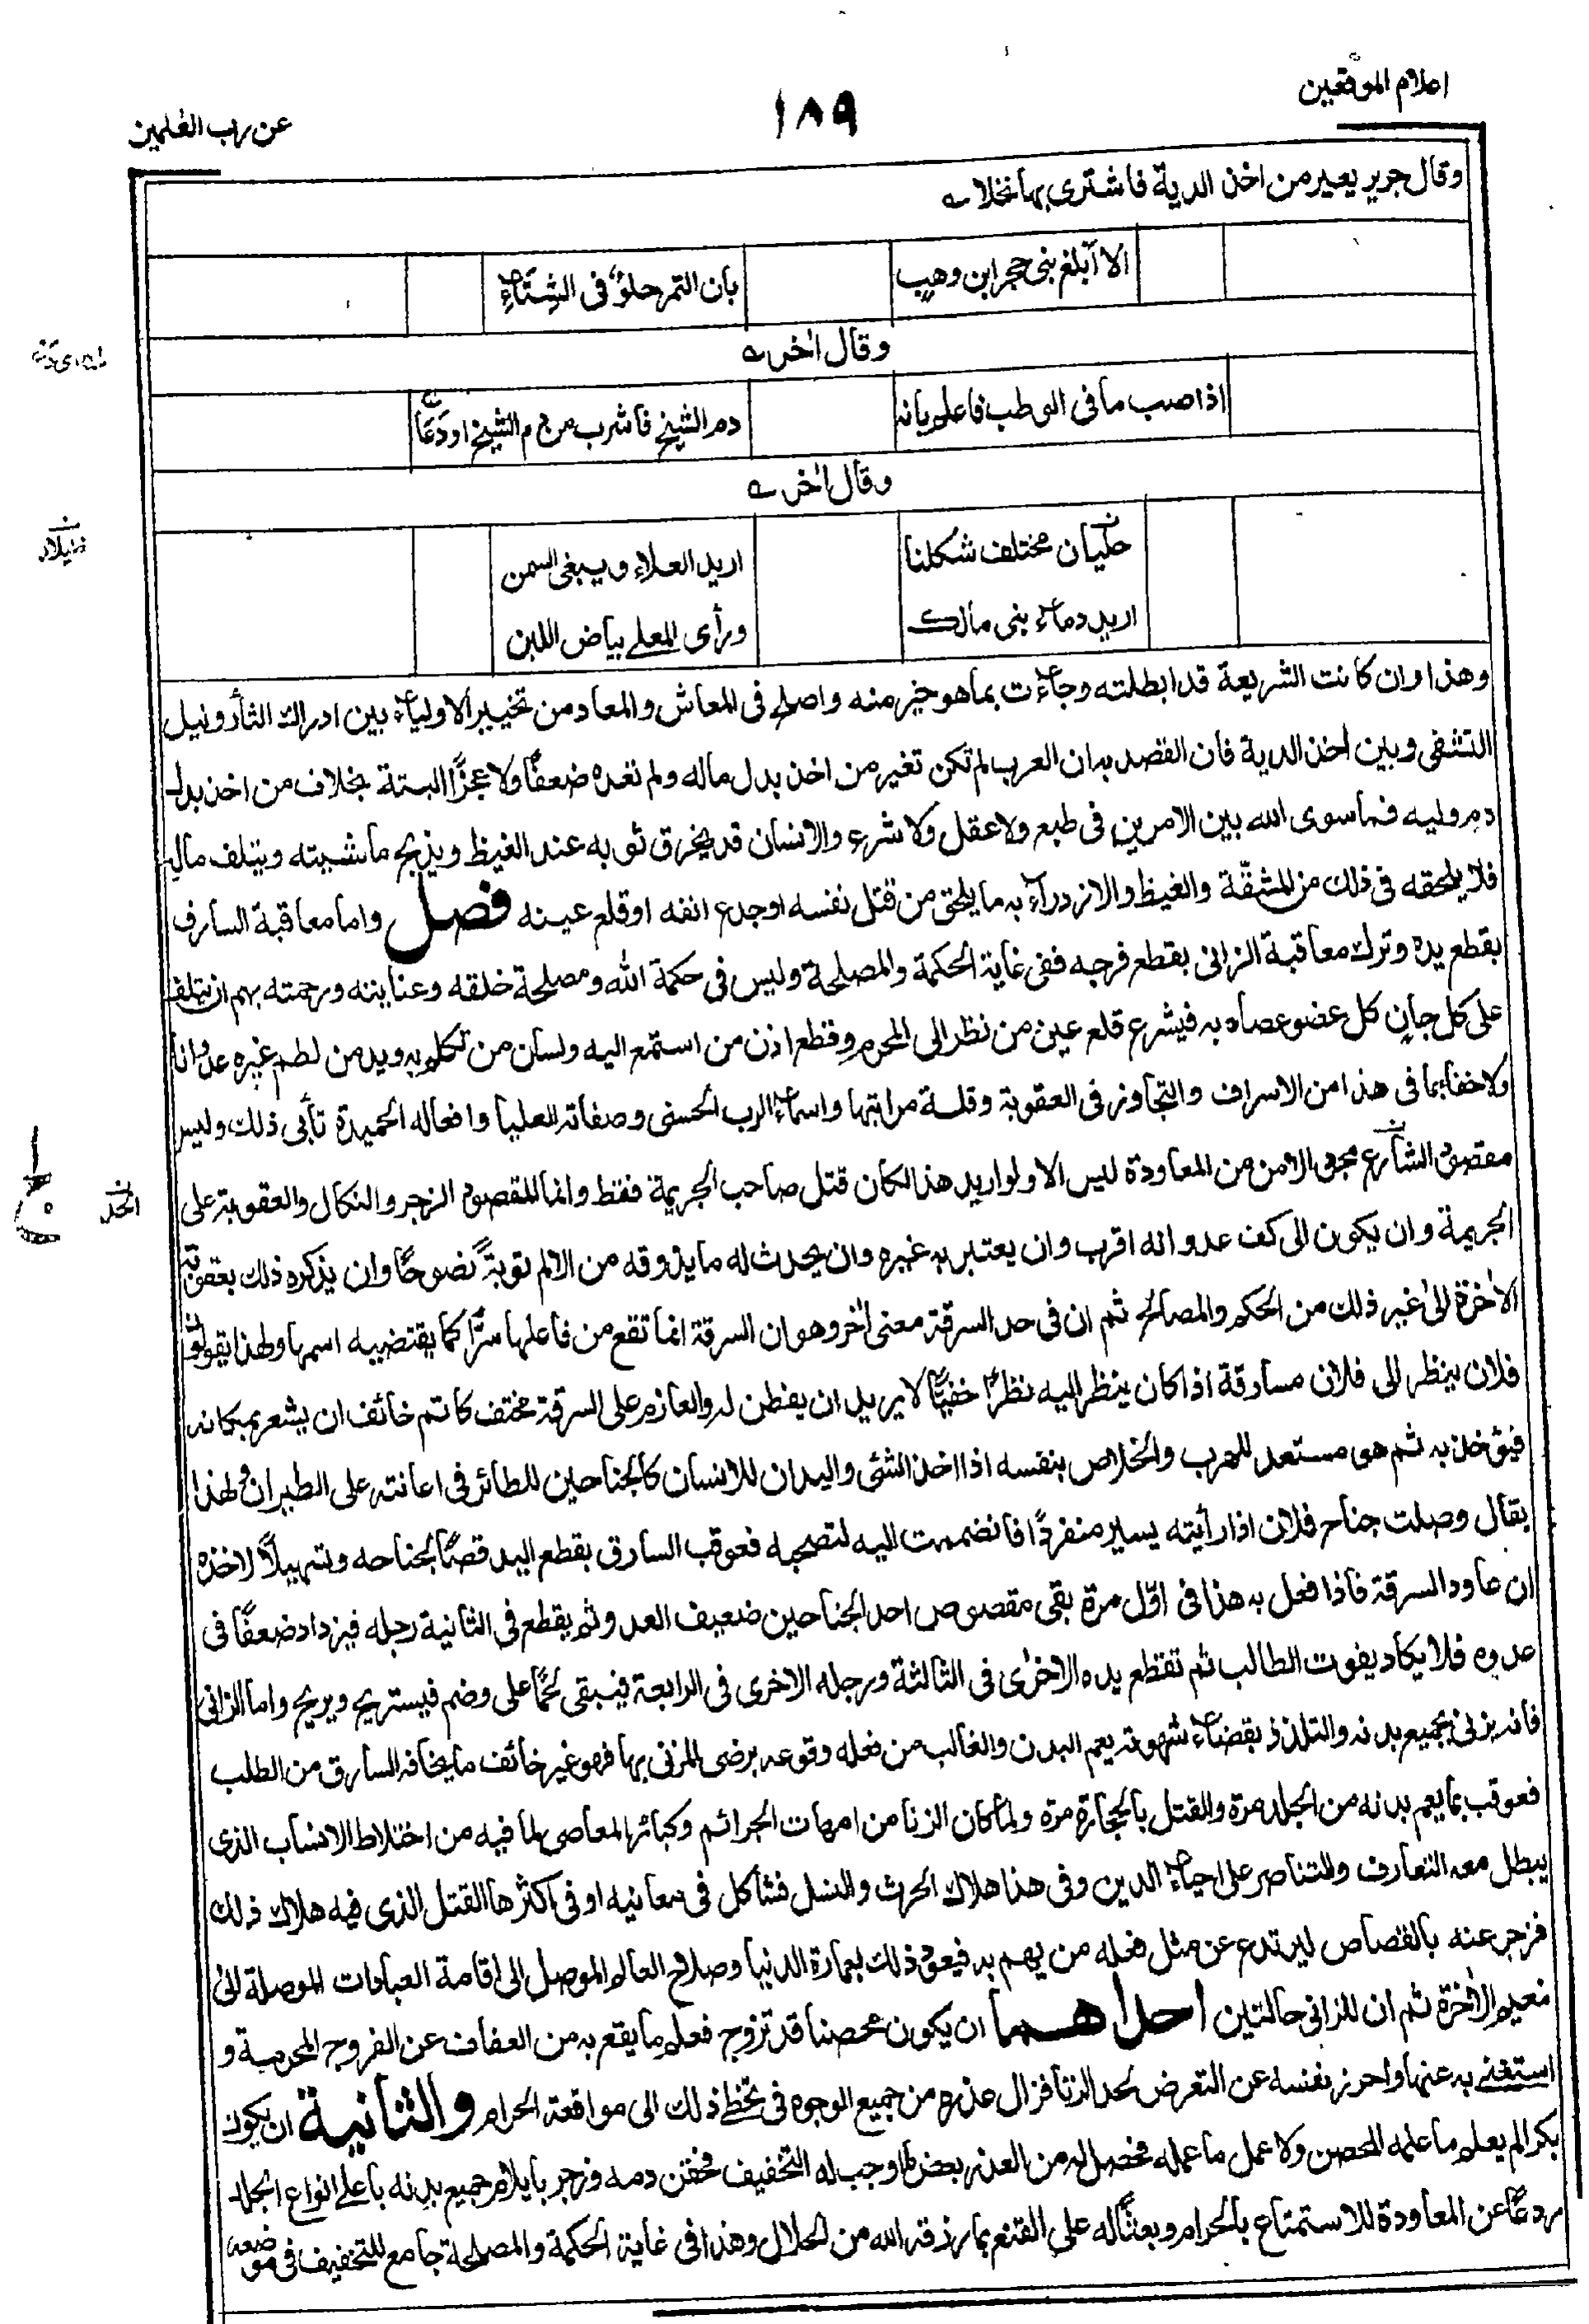 اعلام الموقعين
١٨٩
عن رب العٰلمين
وقال جرير يعير من اخذ الدية فاشترى بها نخلا ؎
الا ابلغ بنى حجر ابن وهب
بان التمر حلو فى الشتاء
وقال اٰخر ؎
اذا صب ما فى الوطب فاعلم بانه
دم الشيخ فاشرب من دم الشيخ اودعا
وقال اٰخر ؎
خليان مختلف شكلنا
اريد العلاء ويبغى السمن
اريد دماء بنى مالك
ورأى المعلى بياض اللبن
وهذا وان كانت الشريعة قد ابطلته وجاءت بما هو خير منه واصلح فى المعاش والمعاد من تخيير الاولياء بين ادراك الثأر ونيل
التشفى وبين اخذ الدية فان القصد به ان العرب لم تكن تعير من اخذ بدل ماله ولم تعده ضعفًا ولا عجزًا البتة بخلاف من اخذ بدل
دم وليه فما سوى الله بين الامرين فى طبع ولا عقل ولا شرع والانسان قد يخرق ثوبه عند الغيظ ويذبح ماشيته ويتلف ماله
فلا يلحقه فى ذلك من المشقّة والغيظ والازدراء به ما يلحق من قتل نفسه او جدع انفه او قلع عينه فصل واما معاقبة السارق
بقطع يده وترك معاقبة الزانى بقطع فرجه ففى غاية الحكمة والمصلحة وليس فى حكمة الله ومصلحة خلقه وعنايته ورحمته بهم ان يتلف
على كل جانٍ كل عضو عصاه به فيشرع قلع عين من نظر الى المحرم وقطع اذن من استمع اليه ولسان من تكلم به ويد من لطم غيره عدوانا
ولا خفاء بما فى هذا من الاسراف والتجاوز فى العقوبة وقلة مراتبها واسماء الرب الحسنى وصفاته العليا وافعاله الحميدة تأبى ذلك وليس
مقصود الشارع مجرد الامن من المعاودة ليس الا ولو اريد هذا لكان قتل صاحب الجريمة فقط وانما المقصود الزجر والنكال والعقوبة على
الجريمة وان يكون الى كف عدوانه اقرب وان يعتبر به غيره وان يحدث له ما يذوقه من الالم توبةً نصوحًا وان يذكره ذلك بعقوبة
الاٰخرة الى غير ذلك من الحكم والمصالح ثم ان فى حد السرقة معنى اٰخر وهو ان السرقة انما تقع من فاعلها سرًّا كما يقتضيه اسمها ولهذا يقولون
فلان ينظر الى فلان مسارقة اذا كان ينظر اليه نظرًا خفيًّا لا يريد ان يفطن له والعازم على السرقة مختف كاتم خائف ان يشعر بمكانه
فيؤخذ به ثم هو مستعد للهرب والخلاص بنفسه اذا اخذ الشئ واليدان للانسان كالجناحين للطائر فى اعانته على الطيران ولهذا
يقال وصلت جناح فلان اذا رأيته يسير منفردًا فانضممت اليه لتصحبه فعوقب السارق بقطع اليد قصًّا لجناحه وتسهيلًا لاخذه
ان عاود السرقة فاذا فعل به هذا فى اوّل مرة بقى مقصوص احد الجناحين ضعيف العدو ثم يقطع فى الثانية رجله فيزداد ضعفًا فى
عدوه فلا يكاد يفوت الطالب ثم تقطع يده الاخرٰى فى الثالثة ورجله الاخرى فى الرابعة فيبقى لحمًا على وضم فيستريح ويريح واما الزانى
فانه يزنى بجميع بدنه والتلذذ بقضاء شهوته يعم البدن والغالب من فعله وقوعه برضى المزنى بها فهو غير خائف ما يخافه السارق من الطلب
فعوقب بما يعم بدنه من الجلد مرة والقتل بالحجارة مرة ولما كان الزنا من امهات الجرائم وكبائر المعاصى لما فيه من اختلاط الانساب الذى
يبطل معه التعارف والتناصر على احياء الدين وفى هذا هلاك الحرث والنسل فشاكل فى معانيه او فى اكثرها القتل الذى فيه هلاك ذلك
فزجر عنه بالقصاص ليرتدع عن مثل فعله من يهم به فيعود ذلك بعمارة الدنيا وصلاح العالم الموصل الى اقامة العبادات الموصلة الى
نعيم الاٰخرة ثم ان للزانى حالتين احداهما ان يكون محصنا قد تزوج فعلم ما يقع به من العفاف عن الفروج المحرمة و
استغنى به عنها واحرز نفسه عن التعرض لحد الزنا فزال عذره من جميع الوجوه فى تخطى ذلك الى مواقعة الحرام والثانية ان يكون
بكرا لم يعلم ما علمه المحصن ولا عمل ما عمله فحصل له من العذر بعض ما اوجب له التخفيف فحقن دمه وزجر بايلام جميع بدنه باعلى انواع الجلد
ردعًا عن المعاودة للاستمتاع بالحرام وبعثًا له على القنع بما رزقه الله من الحلال وهذا فى غاية الحكمة والمصلحة جامع للتخفيف فى موضعه